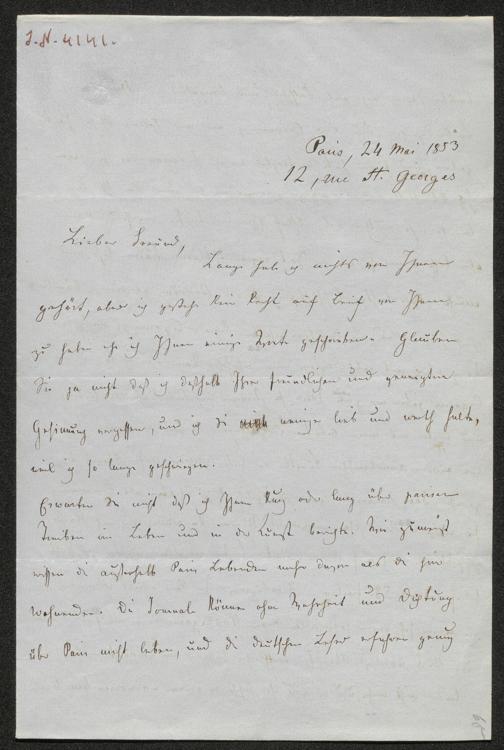 J.N. 4141.
Paris, 24 Mai 1853
12, rue St. Georges
Lieber Freund,
Lange hab ich nichts von Ihnen
gehört, aber ich gestehe kein Recht auf Brief von Ihnen
zu haben ehe ich Ihnen einige Worte geschrieben. Glauben
Sie ja nicht daß ich deßhalb Ihre freundlichen und geneigten
Gesinnung vergessen, und ich Sie weniger lieb und werth halte,
weil ich so lange geschwiegen.
Erwarten Sie nicht daß ich Ihnen kurz oder lang über pariser
Treiben im Leben und in der Kunst berichte. Wie zumeist
wissen die außerhalb Paris Lebenden mehr davon als die hier
Wohnenden. Die Journale können ohne Wahrheit und Dichtung
über Paris nicht leben, und die deutschen Leser erfahren genug